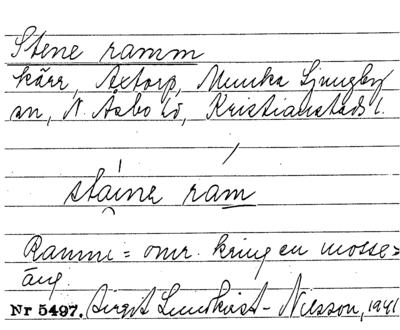 Stene ramm
kärr, Axtorp, Munka Ljungby
sn, N. Åsbo hd, Kristianstads l.
stáine ram
Ramm = omr. kring en mosse=
äng.
Nr 5497. Birgit Lundkvist-Nilsson, 1941